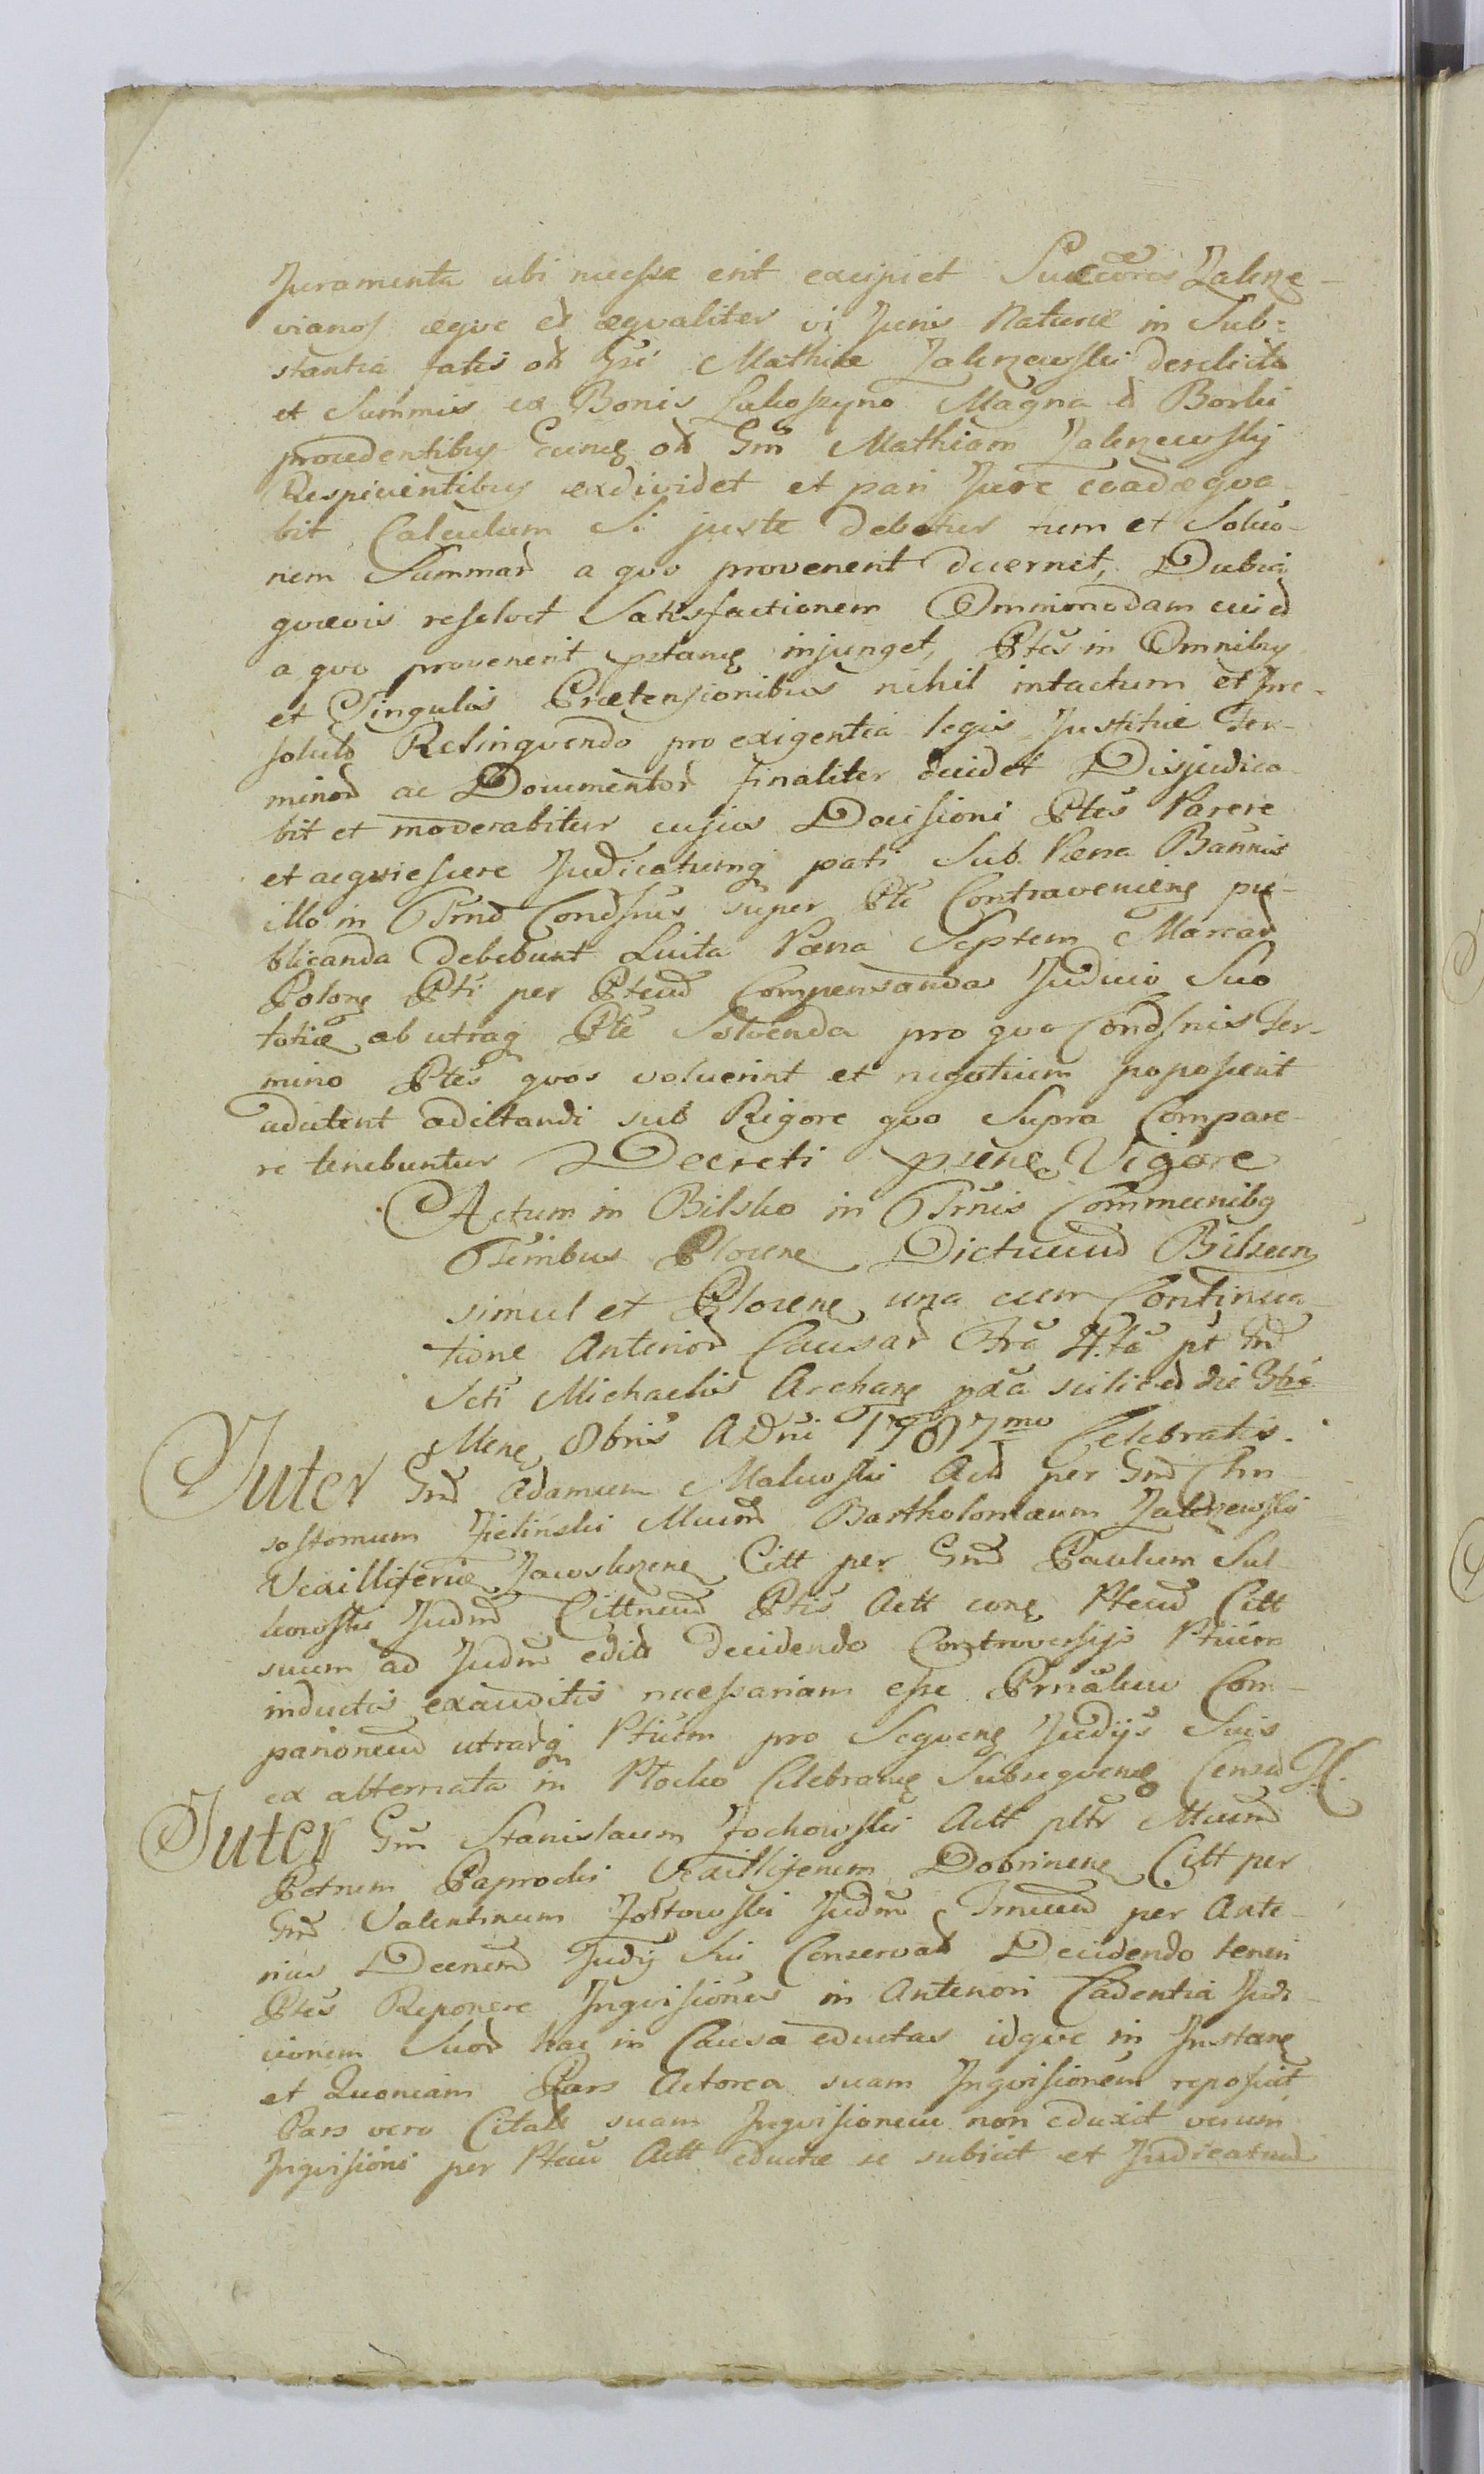 Juramenta ubi necesse erit excipiet Succōres Zalesze-
vianos æque et æqualiter vi Juris Naturæ in Sub=
stantia fatis oḷi Gsi Mathiæ Zaleszewski derelicta
et Summis ex Bonis Lukoszyno Magna et Borki
provedentibus Eunq oḷi Gm Mathiam Zaleszewski
Respicientibus exdividet et pari Jure coadæqua-
bit Calculum Si juste debetur rum et Soluo-
nem Summar a quo provenerit decernet, Dubia
quævis resolvet Satisfactionem Omnimodam cui et
a quo provenerit pstanq injunget, Ptes in Omnibus
et Singulis Prætensionibus nihil intactum et Irre-
soluto Relinquendo pro exigentia legis Justitiæ Ter-
minor ac Documentor finaliter decidet Disjudica-
bit et moderabitur cujus Decisioni Ptes Parere
et acquiescere Judicatumq pati Sub Pæna Bannis
illo in Trno Condsnis super Pte Contravenienq pu-
blicanda Debebunt Luita Pæna Septem Marcar
Polonq Pti per Ptem Compensanda Judicio Suo
totiæ ab utraq Pte Solvenda pro quo Condsnis Ter-
mino Ptes quos voluerint et negotium poposcerit
adcitent adcitandi sub Rigore quo Supra Compare-
re tenebuntur Decreti psenq Vigore
Actum in Bilsko in Trnis Communibq
Trribus Plocenq Districtuum Bilscen
simul et Plocenq una cum Continua-
tione Anterior Causar Fra 4ta pt fm
Scti Michaelis Archanq pxa scilicet die 3tia
Menq 8bris ADni 1787mo Celebratis.
Inter Gm Adamum Malewski Act per Gm Chri
sostomum Zielinski Mcum Bartholomæum Zaleszewski
Vexilliferum Zawskrzenq Citt per Gm Paulum Sul
kowski Judm Cittneum Ptis Act conq Ptem Citt
suum ad Judm edit Decidendo Controversijs Ptium
inductis exauditis necessariam esse Prnalem Com-
parionem utrarq Ptium pro Sequenq Judijs Suis
ex alternata in Plocko Celebranq Subsequenq Censet H.
Inter Gm Stanislaum Zochowski Act pltr Mcum
Petrum Paprocki Vexilliferum Dobrinenq Citt per
Gm Valentinum Zołtowski Judm Trneum per Ante-
rius Decretum Judij Sui Conservat Decidendo teneri
Ptes Reponere Inquisiones in Anteriori Cadentia Judi-
cionim Suor hac in Causa eductas idque in Instanq
et Quoniam Pars Actorea suam Inquisionem reposuit
Pars vero Citata suam Inquisionem non eduxit verum
Inquisioni per Ptem Act eductæ se subiicit et Judicatum